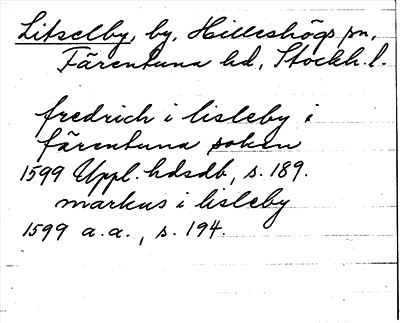 Litselby, by, Hilleshögs sn,
Färentuna hd, Stockh. l.
fredrich i lisleby i
färentuna soken
1599 Uppl. hdsdb, s. 189.
markus i lisleby
1599 a.a., s. 194.